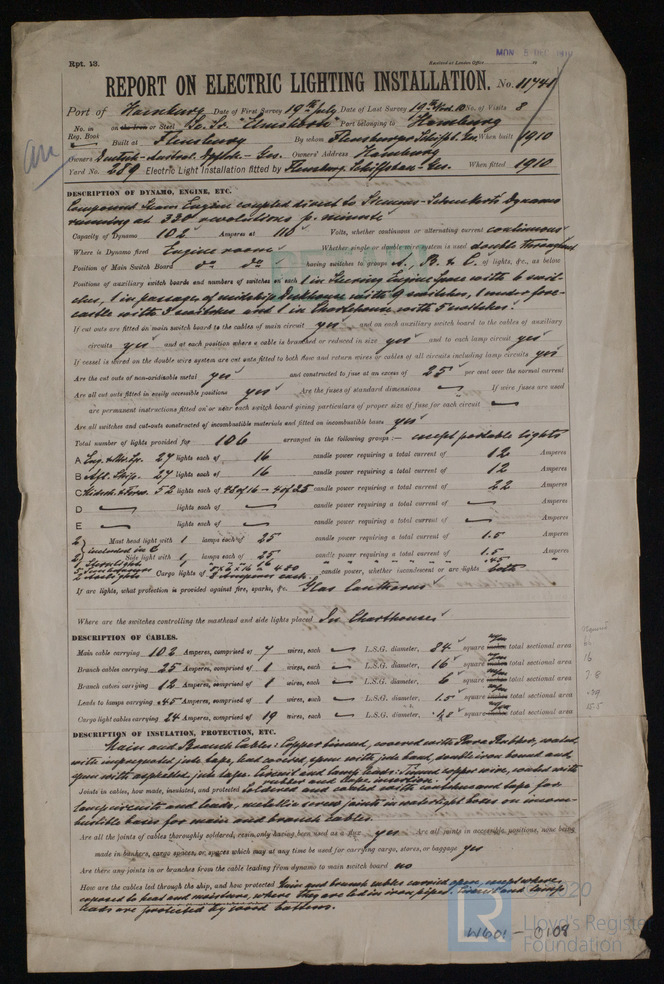 Rpt. 13.
REPORT ON ELECTRIC LIGHTING INSTALLATION. No. 11748
Port of Hamburg Date of First Survey 19th July Date of Last Survey 19th No. of Visits 8
No. in Reg. Book on the Iron or Steel Port belonging to Hamburg
Built at Flensburg By whom Flensburger Schiffsb. Ges. When built 1910
Owners Owners' Address Hamburg
Yard No. 289 Electric Light Installation fitted by Flensburg. Schiffsbau-Ges. When fitted 1910
DESCRIPTION OF DYNAMO, ENGINE, ETC.
Compound Steam Engine coupled direct to Siemens-Schuckert Dynamo
running at 330 revolutions p. minute
Capacity of Dynamo 102 Amperes at 110 Volts, whether continuous or alternating current continuous
Where is Dynamo fixed Engine room Whether single or double wire system is used double throughout
Position of Main Switch Board do do having switches to groups A, B & C. of lights, &c., as below
Positions of auxiliary switch boards and numbers of switches on each 1 in Steering Engine space with 6 swit-
ches, 1 in passage of midship Deckhouse with 9 switches, 1 under fore-
castle with 3 switches and 1 in Charthouse with 5 switches.
If cut outs are fitted on main switch board to the cables of main circuit yes and on each auxiliary switch board to the cables of auxiliary
circuits yes and at each position where a cable is branched or reduced in size yes and to each lamp circuit yes
If vessel is wired on the double wire system are cut outs fitted to both flow and return wires or cables of all circuits including lamp circuits yes
Are the cut outs of non-oxidizable metal yes and constructed to fuse at an excess of 25 per cent over the normal current
Are all cut outs fitted in easily accessible positions yes Are the fuses of standard dimensions If wire fuses are used
are permanent instructions fitted on or near each switch board giving particulars of proper size of fuse for each circuit
Are all switches and cut-outs constructed of incombustible materials and fitted on incombustible bases yes
Total number of lights provided for 106 arranged in the following groups :— except portable lights
A 27 lights each of 16 candle power requiring a total current of 12 Amperes
B Aft. Ship. 27 lights each of 16 candle power requiring a total current of 12 Amperes
C 52 lights each of 48 of 16 - 4 of 25 candle power requiring a total current of 22 Amperes
D lights each of candle power requiring a total current of Amperes
E lights each of candle power requiring a total current of Amperes
2 Mast head light with 1 lamps each of 25 candle power requiring a total current of 1.5 Amperes
2 included in C Side light with 1 lamps each of 25 candle power requiring a total current of 1.5 Amperes
Cargo lights of candle power, whether incandescent or arc lights both
If arc lights, what protection is provided against fire, sparks, &c. Glas lanthorns
Where are the switches controlling the masthead and side lights placed In Charthouse
DESCRIPTION OF CABLES.
Main cable carrying 102 Amperes, comprised of 7 wires, each L.S.G. diameter, 84 square total sectional area
Branch cables carrying 25 Amperes, comprised of 1 wires, each L.S.G. diameter, 16 square total sectional area
Branch cables carrying 12 Amperes, comprised of 1 wires, each L.S.G. diameter, 6 square total sectional area
Leads to lamps carrying .45 Amperes, comprised of 1 wires, each L.S.G. diameter, 1.5 square total sectional area
Cargo light cables carrying 24 Amperes, comprised of 19 wires, each L.S.G. diameter, square total sectional area
DESCRIPTION OF INSULATION, PROTECTION, ETC.
Main and Branch Cables: Copper tinned, covered with Para Rubber,
with impregnated jute tape, lead covered, spun with jute band, double iron bound and
spun with asphalted jute tape. Circuit and lamp leads: Tinned copper wire, coated with
rubber and tape insertion.
Joints in cables, how made, insulated, and protected Soldered and coated with and tape for
lamp circuits and leads, metallic screw joints in watertight boxes on incom-
bustible bases for main and branch cables.
Are all the joints of cables thoroughly soldered, resin only having been used as a flux yes Are all joints in accessible positions, none being
made in bunkers, cargo spaces, or spaces which may at any time be used for carrying cargo, stores, or baggage yes
Are there any joints in or branches from the cable leading from dynamo to main switch board no
How are the cables led through the ship, and how protected Main and branch cables carried open, except where
exposed to heat and moisture, where they are led in iron pipes. Circuit and lamp
leads are protected by wood battens.
W601-0108
2020
Lloyd's Register
Foundation